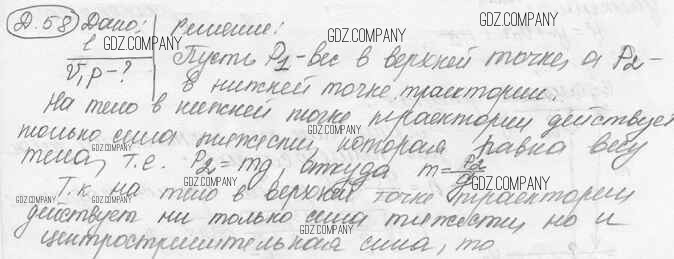 Д.58 Дано: Решение:
l
Пусть P1 - вес в верхней точке, а P2 -
v, p - ?
в нижней точке траектории.
На тело в нижней точке траектории действует
только сила тяжести, которая равна весу
тела, т.е. P2 = mg, откуда m = P2/g.
Т.к. на тело в верхней точке траектории
действует ни только сила тяжести, но и
центростремительная сила, то
GDZ.COMPANY
GDZ.COMPANY
GDZ.COMPANY
GDZ.COMPANY
GDZ.COMPANY
GDZ.COMPANY
GDZ.COMPANY
GDZ.COMPANY
GDZ.COMPANY
GDZ.COMPANY
GDZ.COMPANY